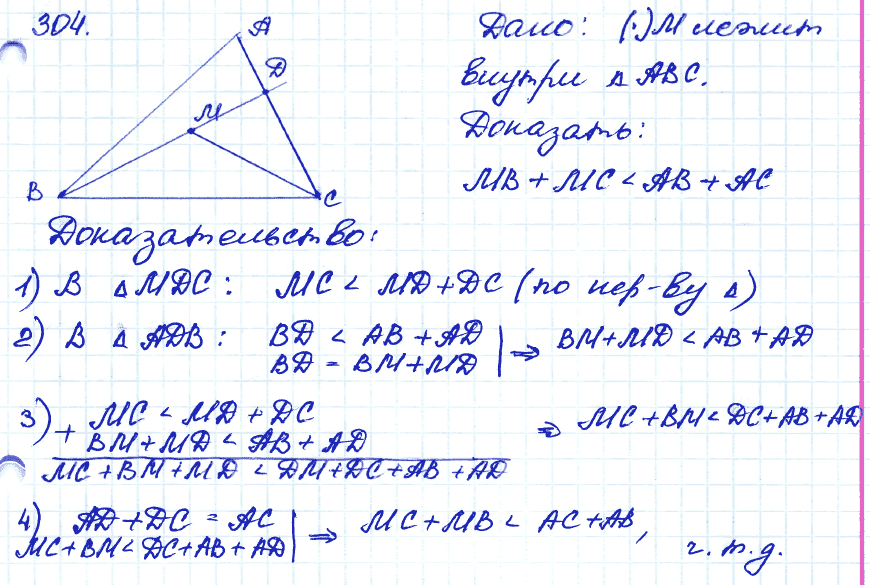 304.
A
D
M
B
C
Дано: (·) M лежит
внутри △ ABC.
Доказать:
MB + MC < AB + AC
Доказательство:
1) В △ MDC: MC < MD + DC (по нер-ву △)
2) В △ ADB: BD < AB + AD | ⇒ BM + MD < AB + AD
BD = BM + MD
3) + MC < MD + DC ⇒ MC + BM < DC + AB + AD
BM + MD < AB + AD
MC + BM + MD < DM + DC + AB + AD
4) AD + DC = AC | ⇒ MC + MB < AC + AB,
MC + BM < DC + AB + AD
ч. т. д.